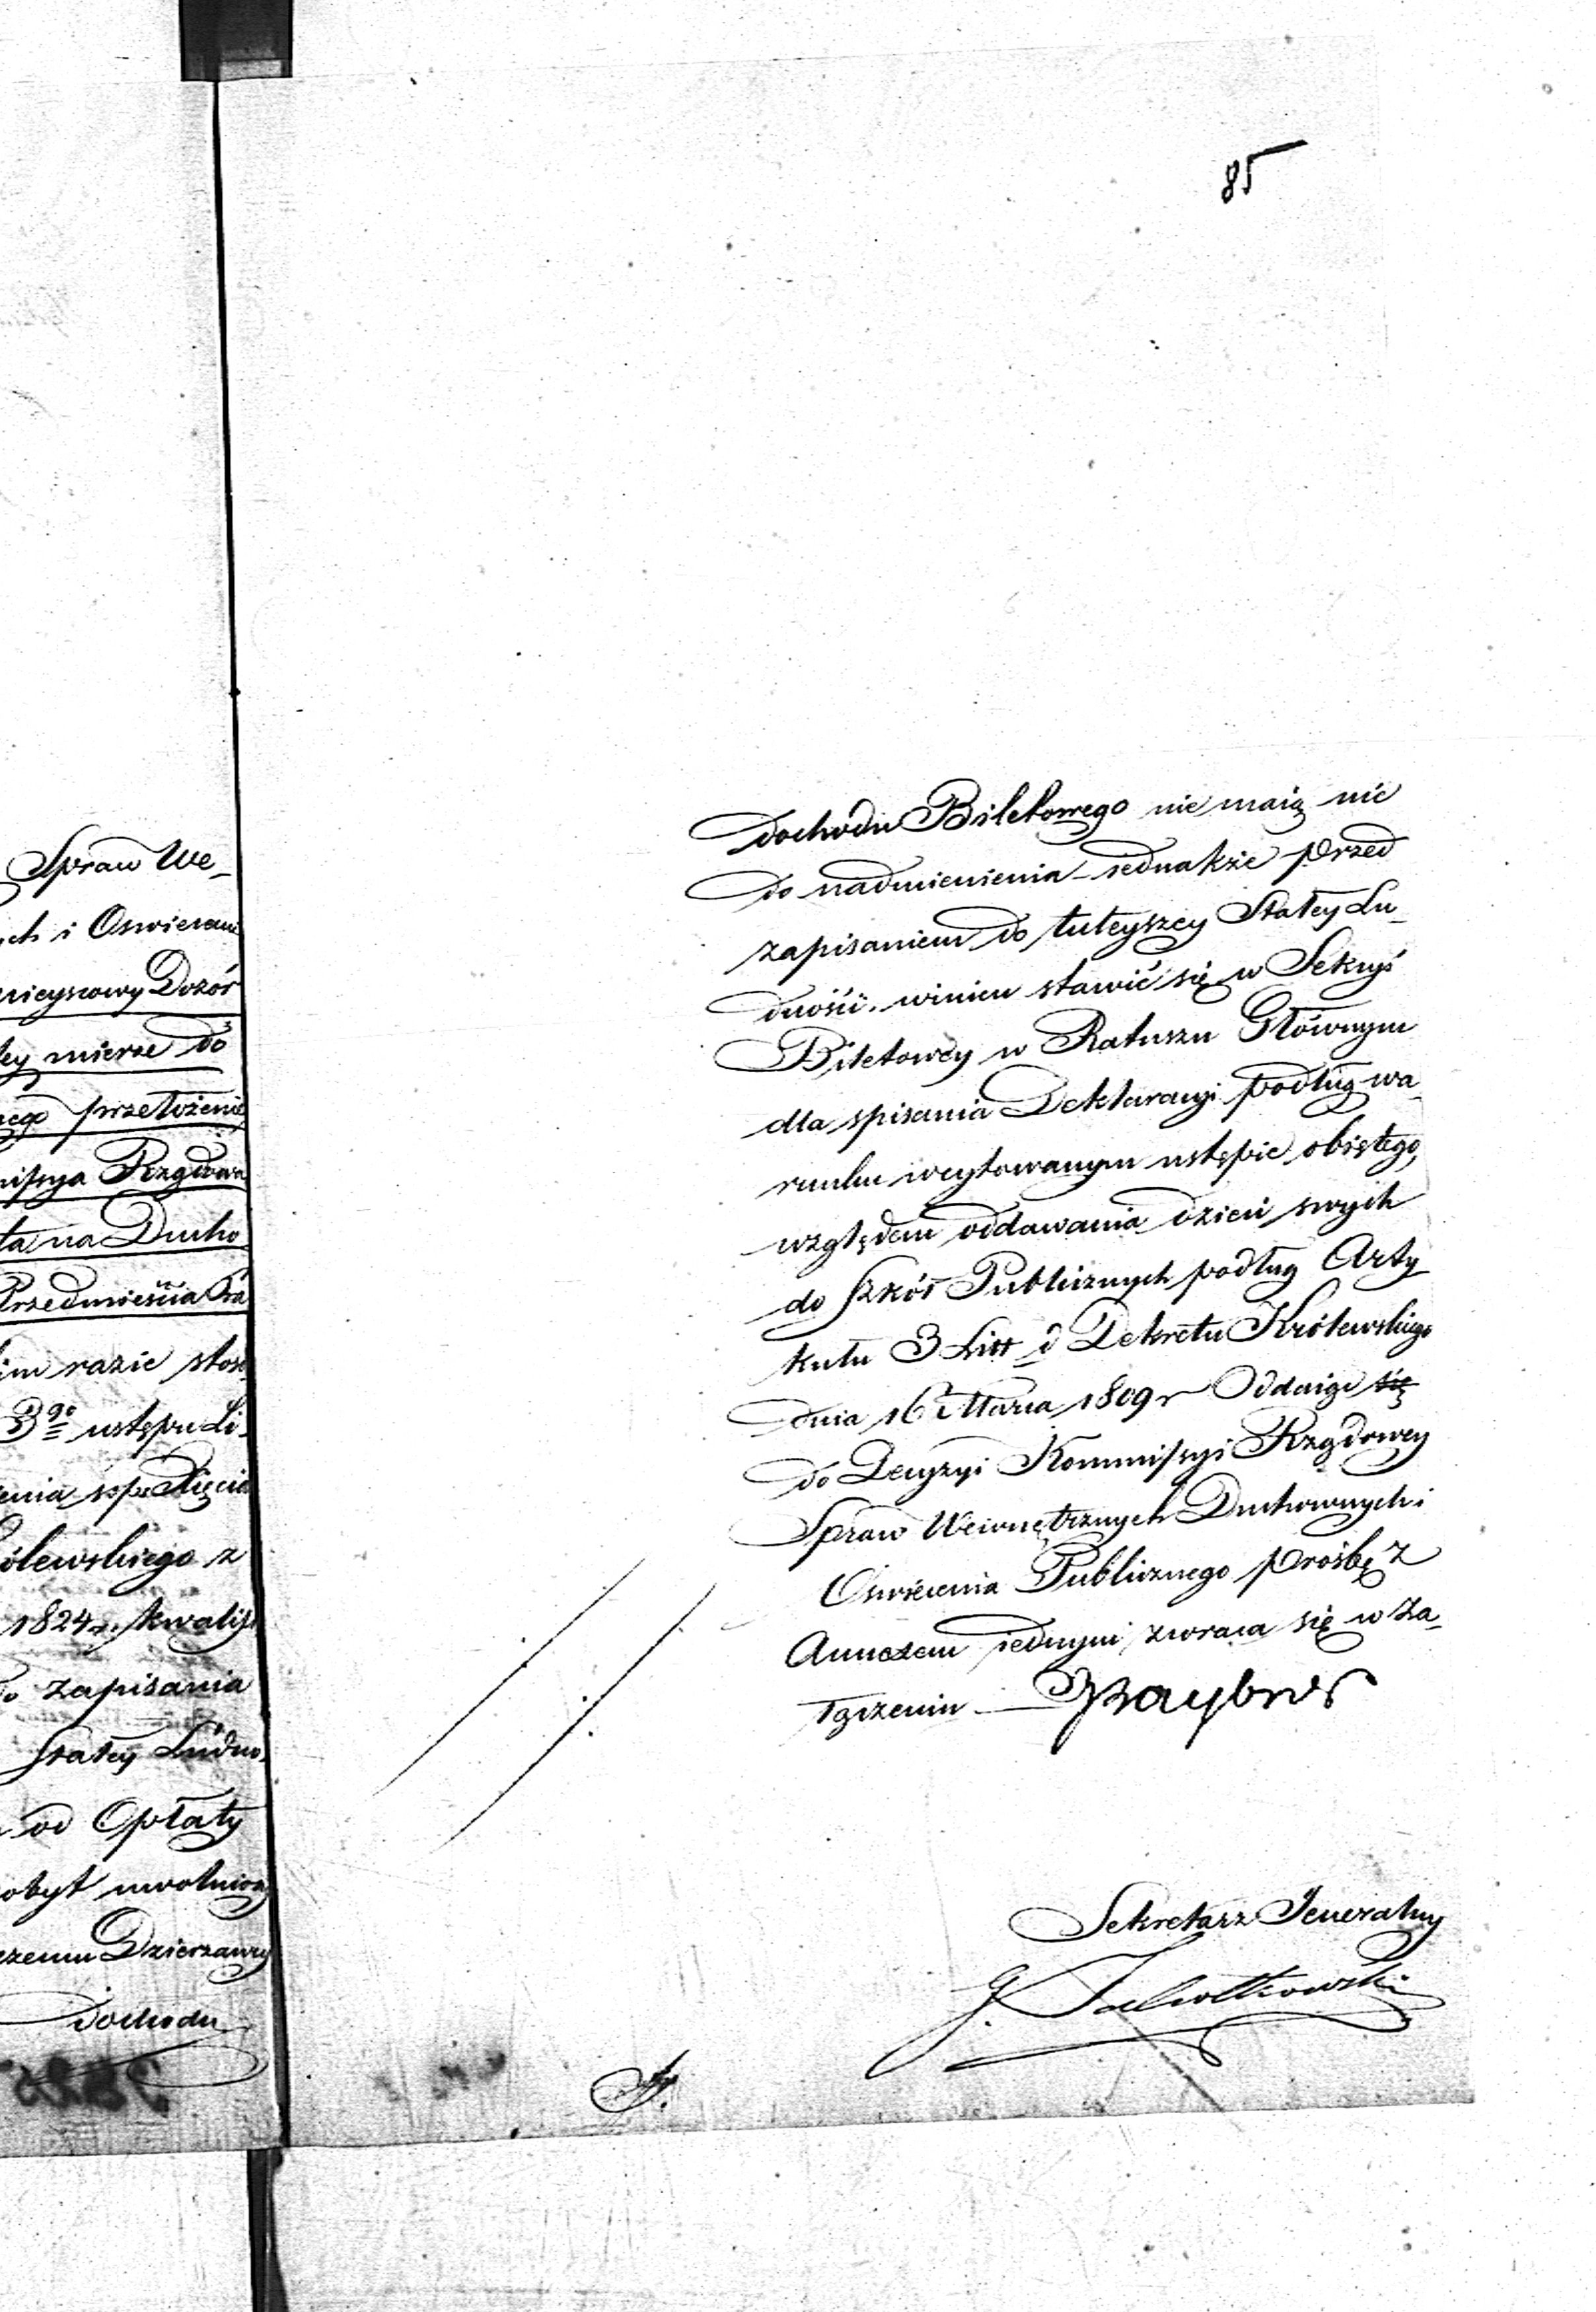 85
Spraw We-
ch i Oswiecenia
mieyscowy Dozór
tey mierze do
nego przełożenie
missya Rządowa
ta na Ducho
Przedmieścia Kra
kim razie stoso
3go ustępu Li-
enia spr Xięcia
rólewskiego z
1824 r. kwalifi
do zapisania
Stałey Ludno-
od Opłaty
pobyt uwolniony
czemu Dzierzawcy
Dochodu
Dochodu Biletowego nie maią nic
do nadmienienia – jednakże przed
zapisaniem do tuteyszey Stałey Lu-
dności, winien stawić się w Sekcyi
Biletowey w Ratuszu Głównym
dla spisania Deklaracyi podług wa-
runku wcytowanym ustępie obiętego,
względem oddawania dzieci swych
do Szkół Publicznych podług Arty
kułu 3 Litt d Dekretu Królewskiego
dnia 16 Marca 1809 r Oddaige się
do Decyzyi Kommissyi Rządowey
Spraw Wewnętrznych Duchownych i
Oswiecenia Publicznego prośbę z
Annexem jednym zwraca się w Za-
łączeniu —
Sekretarz Jeneralny